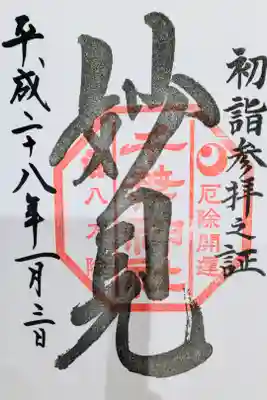 初詣参拝之証
妙見
厄除開運
八方除
平成二十八年一月三日